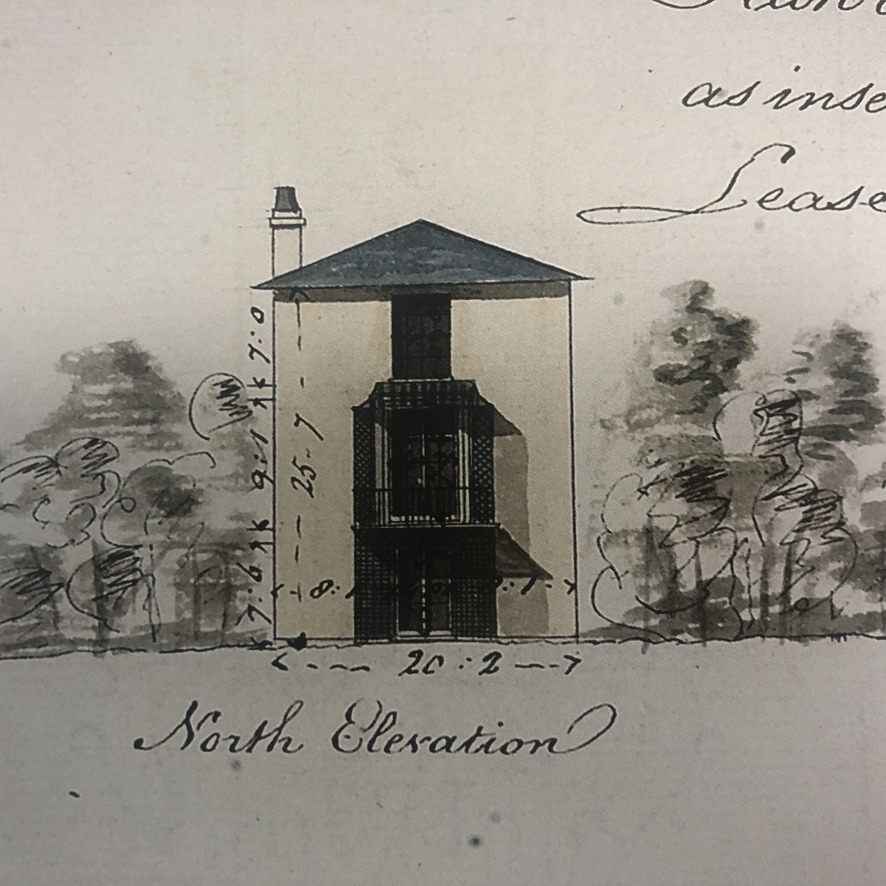 as inse
Lease
7:0
9:1
25-7
7:6
8:1
20:2
North Elevation